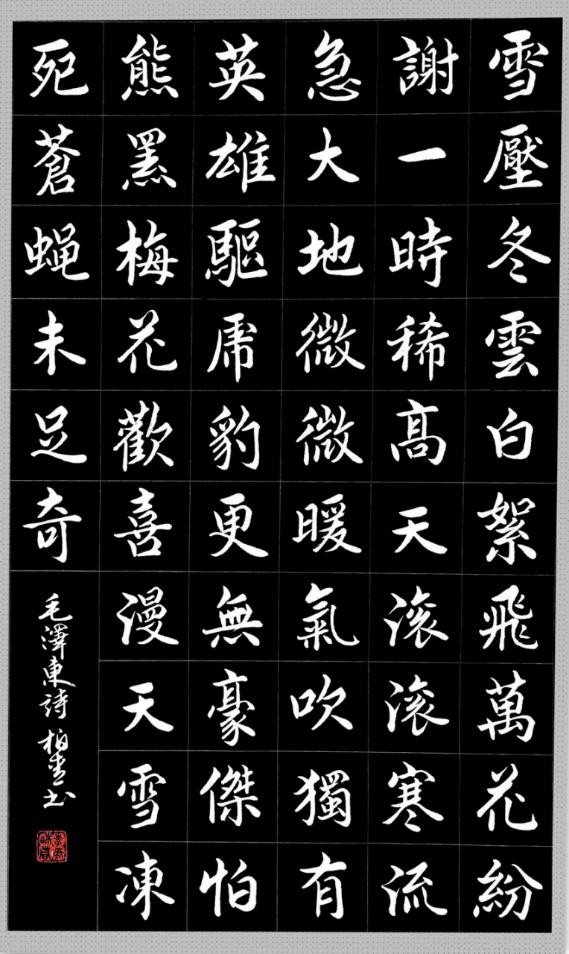 雪壓冬雲白絮飛萬花紛
謝一時稀髙天滚滚寒流
急大地微微暖氣吹獨有
英雄驅虎豹更無豪傑怕
熊羆梅花歡喜漫天雪凍
死蒼蝇未足奇
毛澤東詩 柏青书